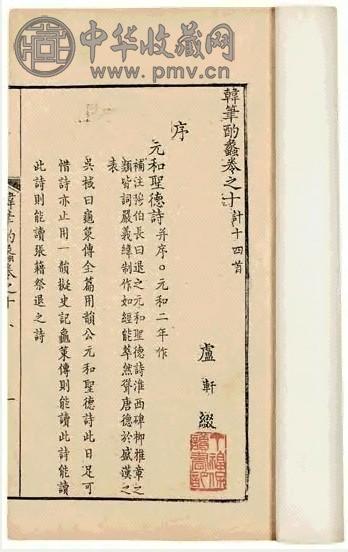 中华收藏网
www.pmv.cn
韓筆酌蠡卷之十 計十四首
盧軒綴
序
元和聖德詩 并序〇元和二年作
補注張伯長曰退之元和聖德詩淮西碑柳雅章之
類皆詞嚴義緯制作如經能萃然聳唐德於盛漢之
表
吳棫曰龜策傳全篇用韻公元和聖德詩此日足可
惜詩亦止用一韻擬史記龜策傳則能讀此詩能讀
此詩則能讀張籍祭退之詩
韓筆酌蠡卷之十
一